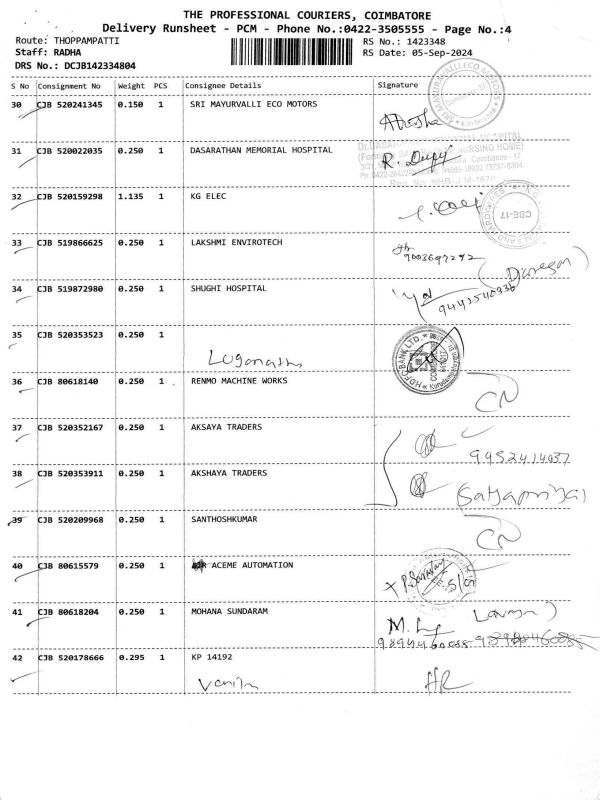 THE PROFESSIONAL COURIERS, COIMBATORE
Delivery Runsheet - PCM - Phone No.:0422-3505555 - Page No.:4
Route: THOPPAMPATTI RS No.: 1423348
Staff: RADHA RS Date: 05-Sep-2024
DRS No.: DCJB142334804
S No Consignment No Weight PCS Consignee Details Signature
30 CJB 520241345 0.150 1 SRI MAYURVALLI ECO MOTORS
31 CJB 520022035 0.250 1 DASARATHAN MEMORIAL HOSPITAL
32 CJB 520159298 1.135 1 KG ELEC
CBE-17
33 CJB 519866625 0.250 1 LAKSHMI ENVIROTECH
9003697292
34 CJB 519872980 0.250 1 SHUGHI HOSPITAL
9442540336
35 CJB 520353523 0.250 1
36 CJB 80618140 0.250 1 RENMO MACHINE WORKS
CN
37 CJB 520352167 0.250 1 AKSAYA TRADERS
9452414037
38 CJB 520353911 0.250 1 AKSHAYA TRADERS
(Sathapriya)
39 CJB 520209968 0.250 1 SANTHOSHKUMAR
CN
40 CJB 80615579 0.250 1 ACEME AUTOMATION
41 CJB 80618204 0.250 1 MOHANA SUNDARAM
42 CJB 520178666 0.295 1 KP 14192